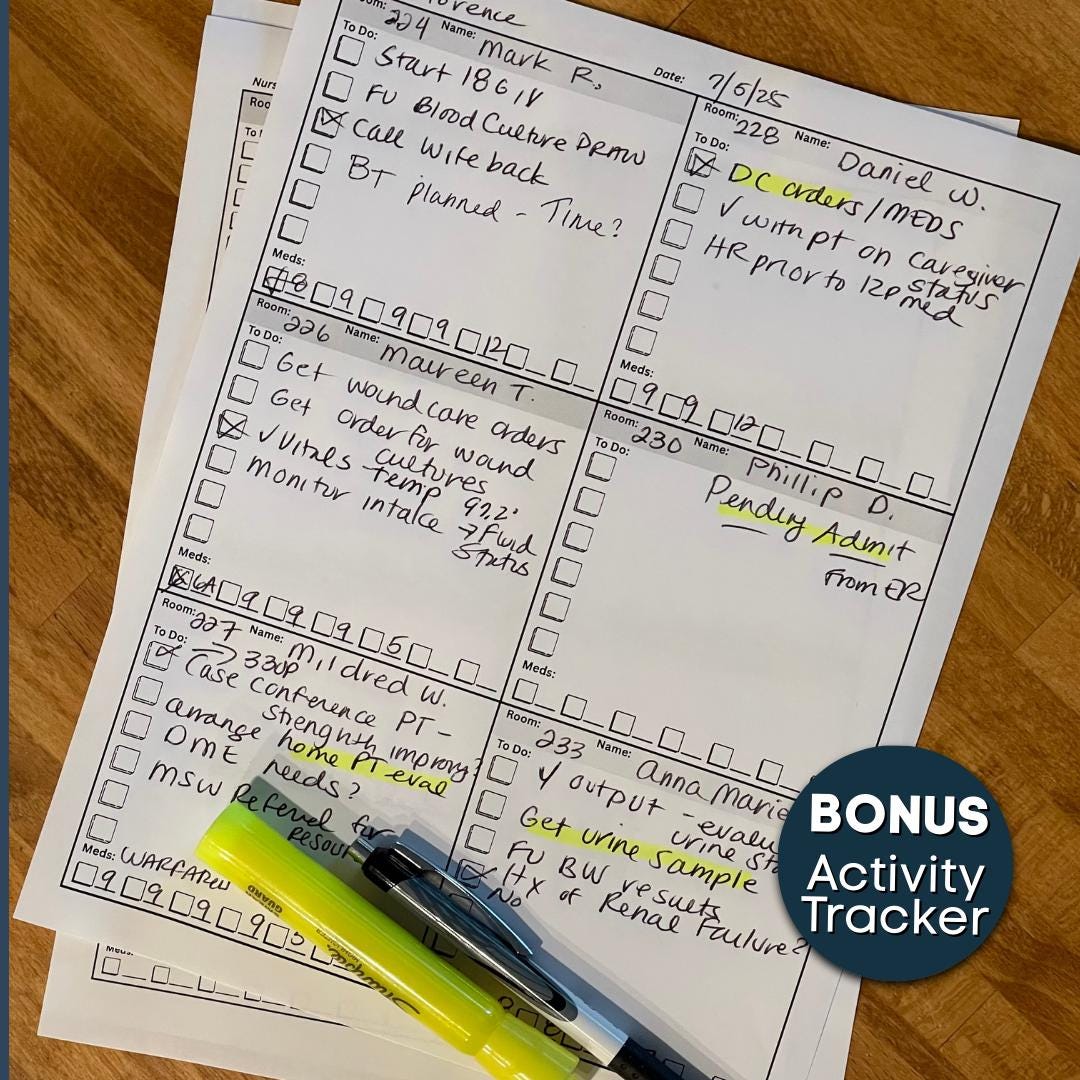 Room: 224 Name: Mark R.
Date: 7/5/25
To Do:
Start 18G IV
FU Blood Culture DRAW
Call wife back
BT planned - Time?
Meds:
8 9 9 9 12
Room: 228 Name: Daniel W.
To Do:
DC orders / MEDS
✓ with pt on caregiver
status
HR prior to 12p med
Meds:
9 9 12
Room: 226 Name: Maureen T.
To Do:
Get wound care orders
Get order for wound
cultures
✓ Vitals Temp
monitor intake → Fluid
Status
Meds:
6A 9 9 9 5
Room: 230 Name: Phillip D.
To Do:
Pending Admit
From ER
Meds:
Room: 227 Name: Mildred W.
To Do: → 330p
Case conference PT -
Strengnth improving?
arrange home PT eval
DME needs?
MSW Referral for
Meds: WARFARIN
9 9 9 9 5
Room: 233 Name: Anna Marie
To Do:
output - 
urine
Get urine sample
FU BW results
Hx of Renal Failure?
No
GUARD
Sharpie
Meds:
BONUS
Activity
Tracker